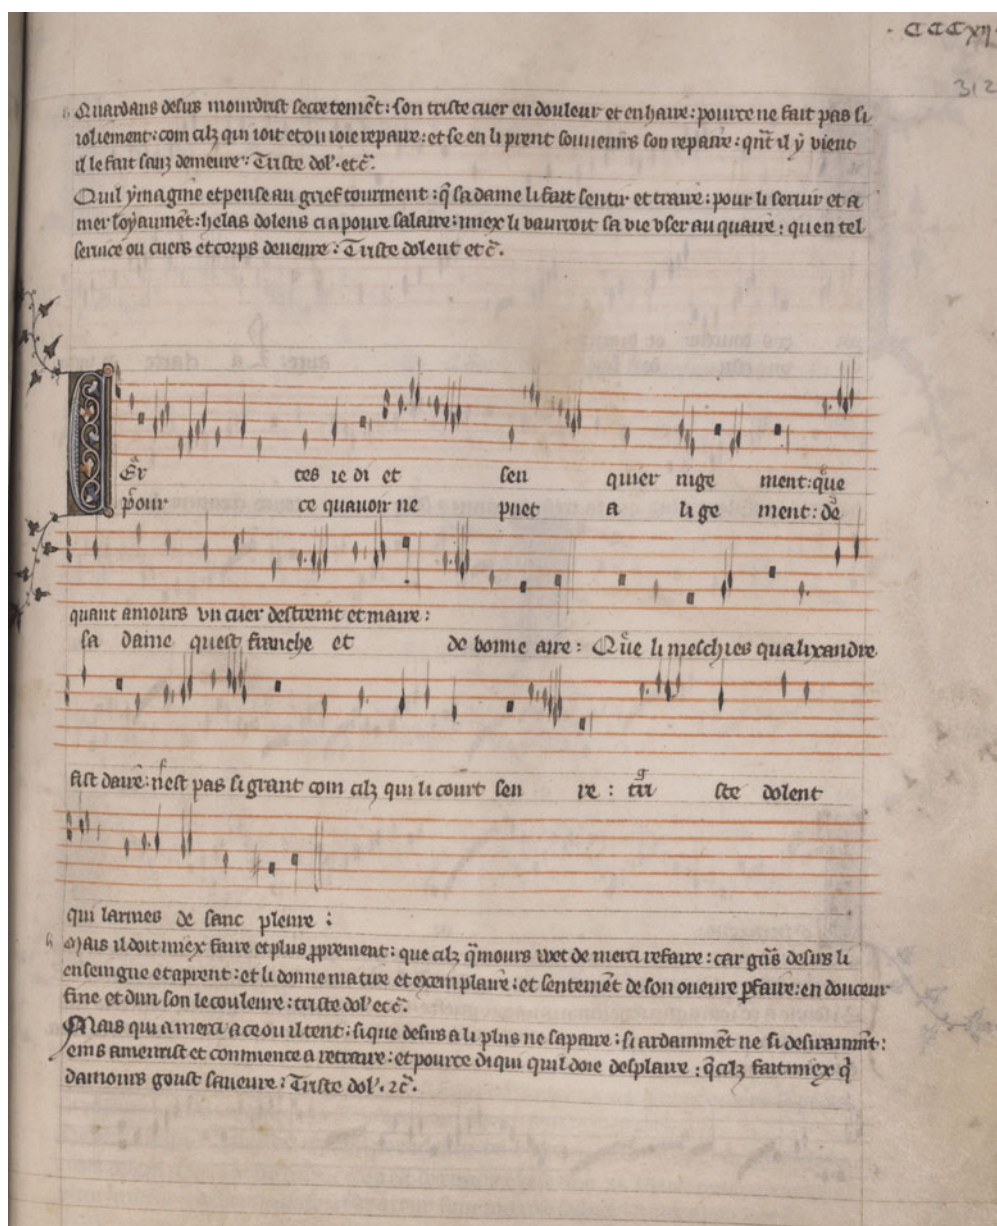 · CCCxij·
312
Quardans desus mourdrist secretemēt: son triste cuer en douleur et en haire: pource ne fait pas si
ioliement: com cilz qui ioit et ou ioie repaire: et se en li prent souuenirs son repaire: qn̄t il ÿ vient
il le fait sanz demeure: Triste dol'. etc̄.
Quil ymagine et pense au grief tourment: q̄ sa dame li fait sentir et traire: pour li seruir et a
mer loyaumēt: helas dolens ci a poure salaire: miex li vaurroit sa vie vser au quaire: quen tel
seruice ou cuers et corps deueure: Triste dolent et c̄.
Cer tes ie di et sen quier iuge ment: que
pour ce quauoir ne puet a lige ment: de
quant amours vn cuer destreint et maire:
sa dame quest franche et de bonne aire: Que li meschies qualixandre
fist daire: nest pas si grant com cilz qui li court seu re: tri ste dolent
qui larmes de sanc pleure:
Mais il doit miex faire et plus ꝓprement: que cilz q̄mours vet de merci refaire: car grās desirs li
enseingne et aprent: et li donne matire et exemplaire: et sentemēt de son oueure ꝑfaire: en douceur
fine et dun son le couleure: triste dol' et c̄.
Mais qui a merci a ce ou il tent: si que desirs a li plus ne sapaire: si ardammēt ne si desirammēt:
eins amenrist et conmence a retraire: et pource di qui quil doie desplaire: q̄ cilz fait miex q̄
damours goust saueure: Triste dol'. ⁊c̄.